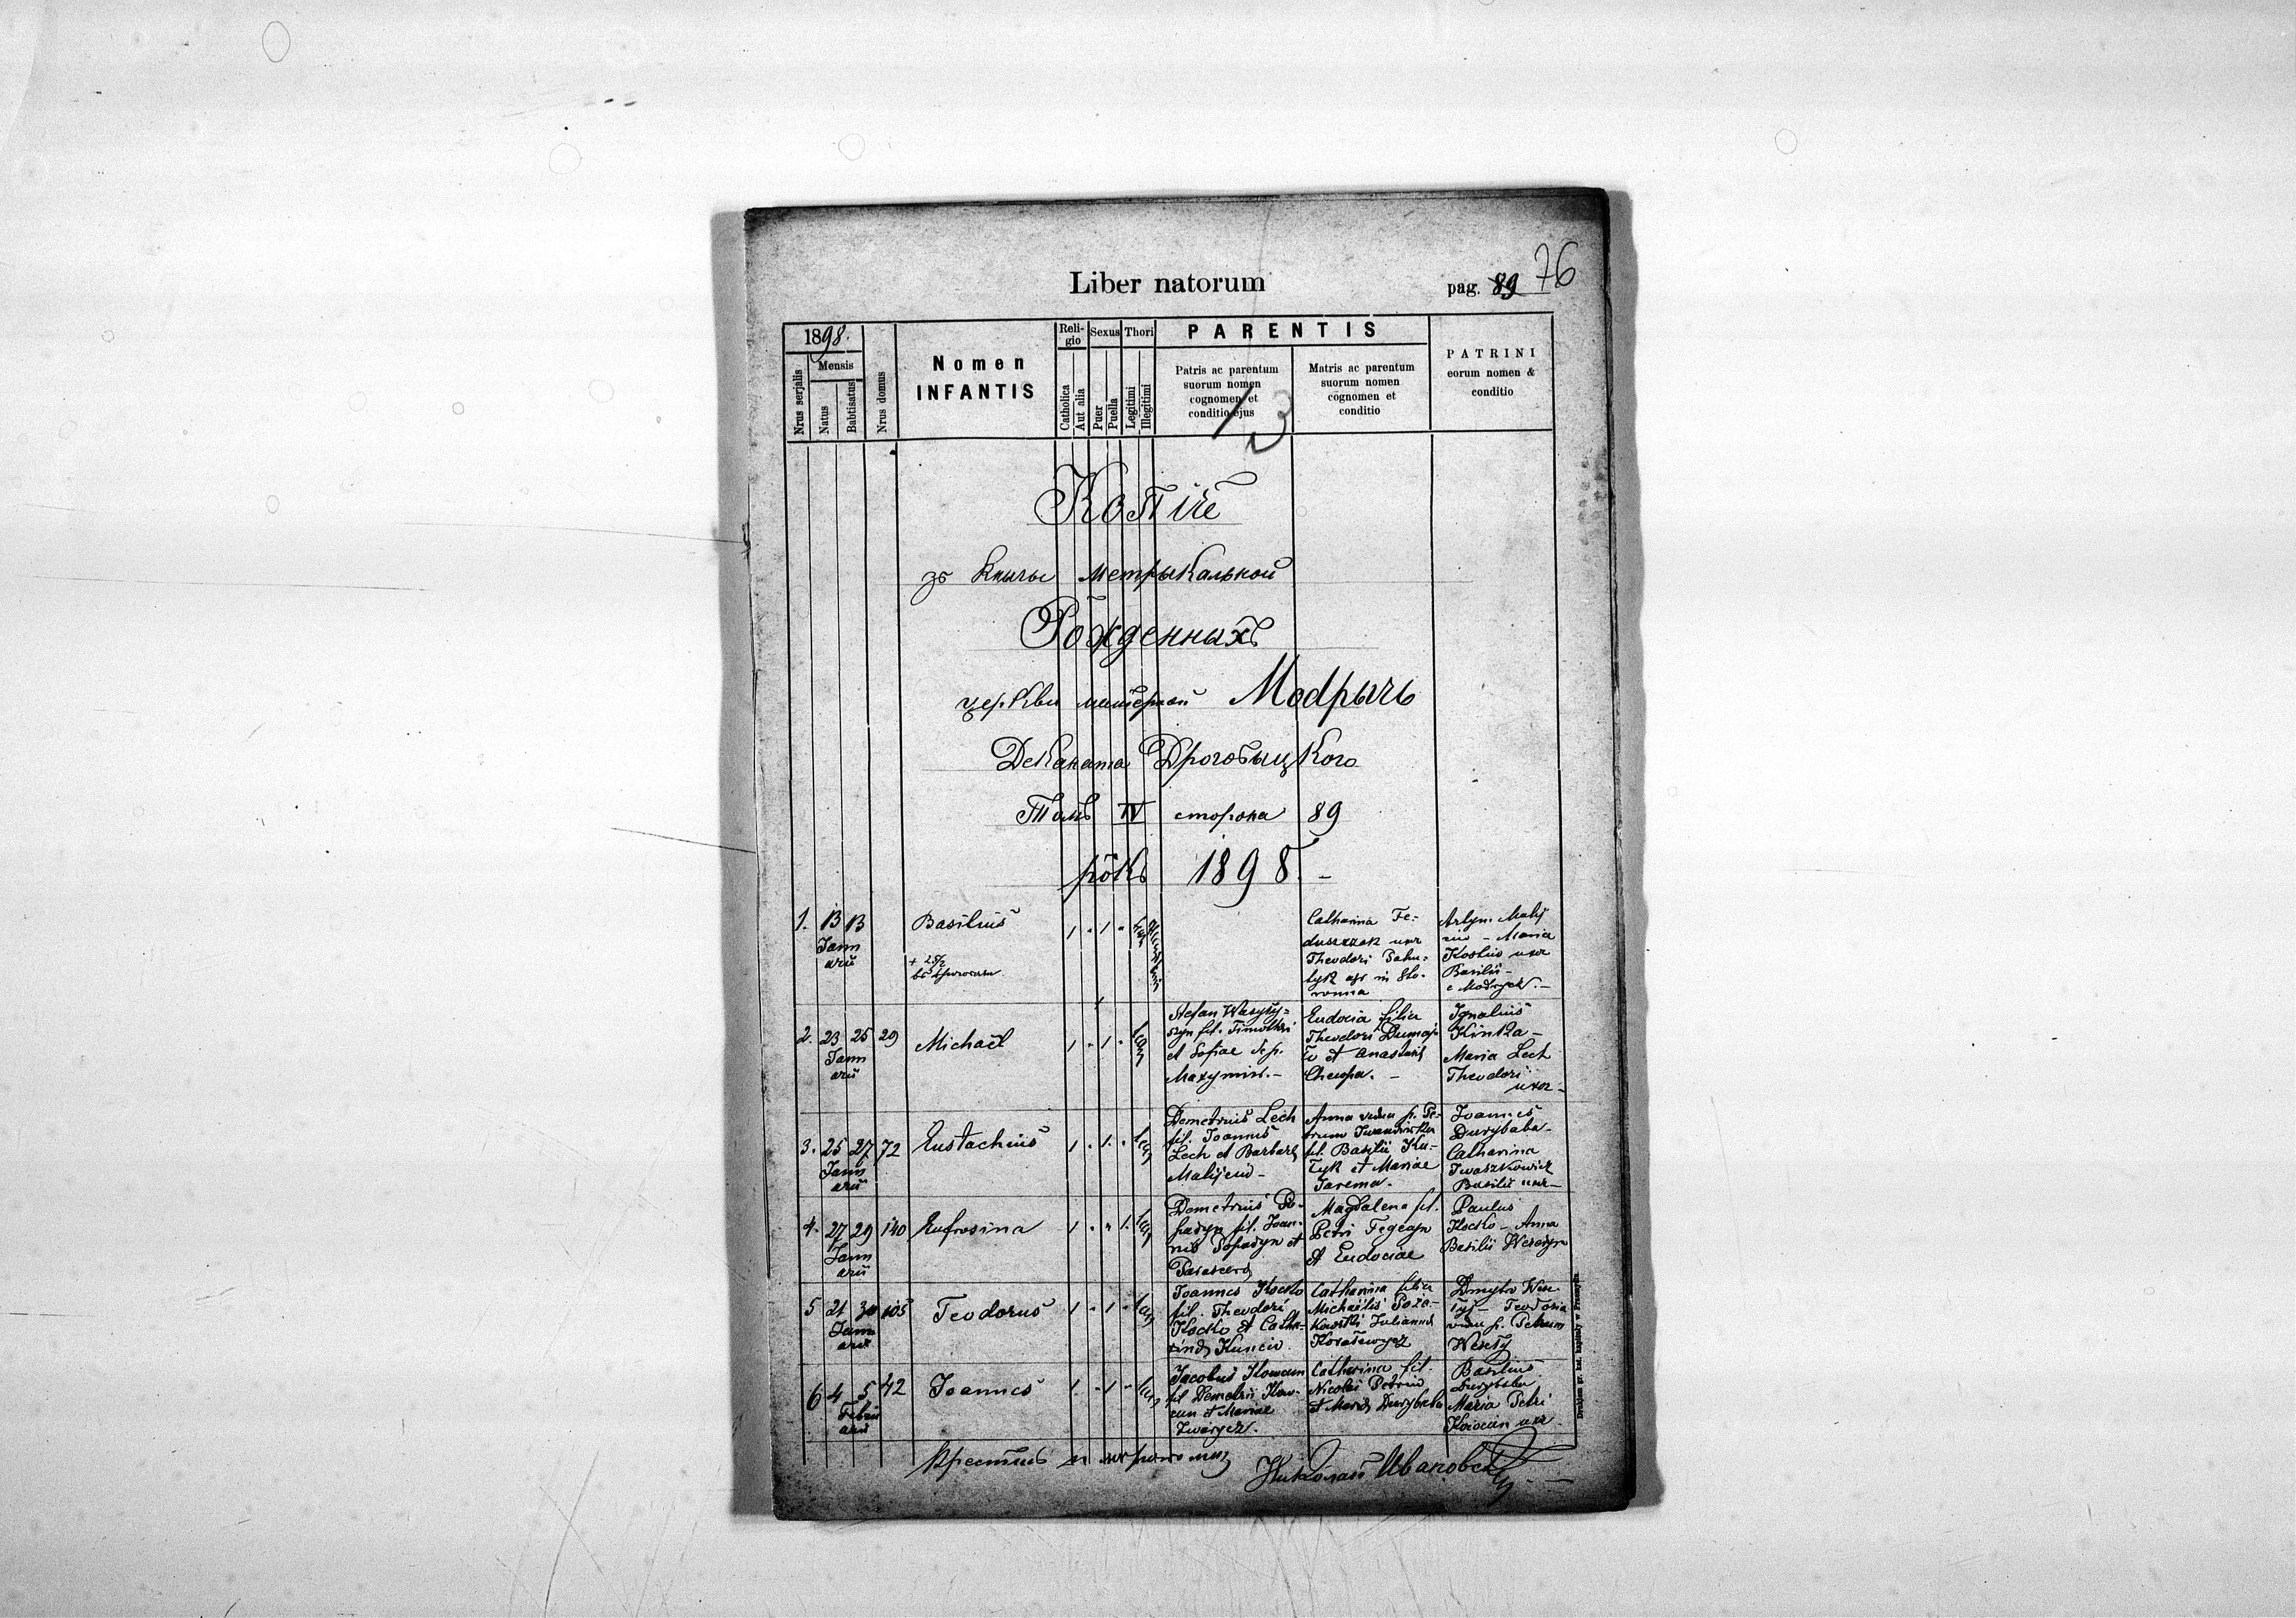 Liber natorum
pag. 89 76
1898.
Nrus serjalis
Mensis
Natus
Babtisatus
Nrus domus
Nomen
INFANTIS
Reli-
gio
Catholica
Aut alia
Sexus
Puer
Puella
Thori
Legitimi
Illegitimi
PARENTIS
Patris ac parentum
suorum nomen
cognomen et
conditio ejus
Matris ac parentum
suorum nomen
cognomen et
conditio
PATRINI
eorum nomen &
conditio
13
Копіѣ
зъ Книгы Метрыкальной
Рожденныхъ
церкви матерной Модрычь
Деканата Дрогобыцкого
Томъ IV сторона 89
рôкъ 1898. -
1. 13 13
Janu
arii
Basilius
1 - 1 -
Catharina Fe-
duszczak uxor
Theodori
in Sto-
Maria
Kostiw uxor
Basilii -
e Modrycz. -
2. 23 25 29
Janu
arii
Michaël
1 - 1 - leg
Stefan Wasyły-
szyn fil. Timothei
et Sofiae
Maxymiw. -
Eudocia filia
Theodori
et Anastasiae
Ignatius
Kintza -
Maria Lech
Theodori
uxor -
3. 25 27 72
Janu
arii
Eustachius
1 - 1. - leg
Demetrius Lech
fil. Joannis
Lech et Barbarae
Anna vidua p. Pe-
trum
fil. Basilii Ku-
tyk et Mariae
Jarema. -
Joannes
Durybaba -
Catharina
Iwaszkowicz
Basilii uxor -
4. 27 29 140
Janu
arii
Eufrosina
1 - - 1. leg
Demetrius Po-
padyn fil. Joan-
nis Popadyn et
Magdalena fil.
Petri
et Eudociae
Paulus
Kocko - Anna
Basilii
5 21 30 105
Janu
arii
Teodorus
1 - 1 - leg
Joannes Kocko
fil. Theodori
Kocko et Catha-
rinae Kunciw.
Catharina filia
Michaëlis Poża-
kowski Julianna
Dmytro Wese
ły - Teodosia
vidua p. Petrum
Weseły
6 4 5 42
Febru
arii
Joannes
1. - 1 - leg
Jacobus
fil. Demetrii
et Mariae
Iwasycz.
Catharina fil.
Nicolai Petriw
et Mariae Durybaba
Basilius
Durybaba
Maria Petri
uxor
Крестивъ и
Николай Ивановскій
Drukiem gr. kat. kapituły w Przemyślu